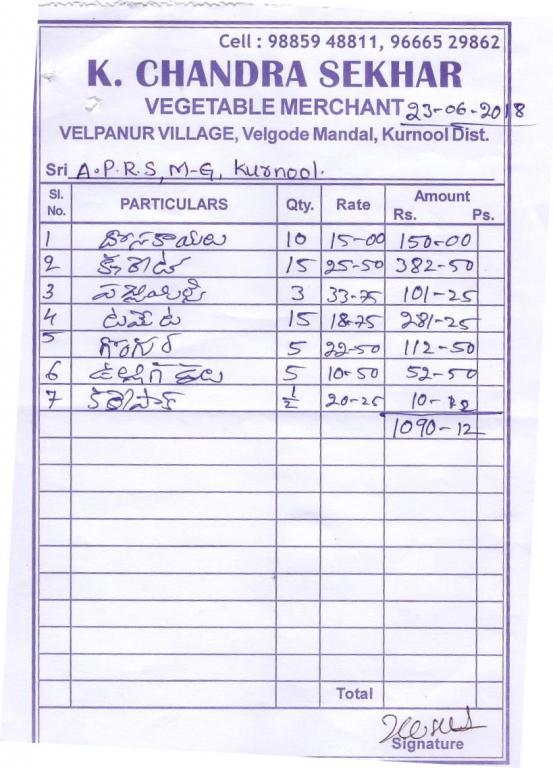 Cell : 98859 48811, 96665 29862
K. CHANDRA SEKHAR
VEGETABLE MERCHANT 23-06-2018
VELPANUR VILLAGE, Velgode Mandal, Kurnool Dist.
Sri A.P.R.S, M-G, Kurnool.
Sl. No. PARTICULARS Qty. Rate Amount Rs. Ps.
1 దోసకాయలు 10 15-00 150-00
2 క్యారెట్ 15 25-50 382-50
3 పచ్చిమిర్చి 3 33-75 101-25
4 టమోట 15 18-75 281-25
5 గోంగూర 5 22-50 112-50
6 ఉల్లిగడ్డలు 5 10-50 52-50
7 కరిపాక్ ½ 20-25 10-12
1090-12
Total
Signature